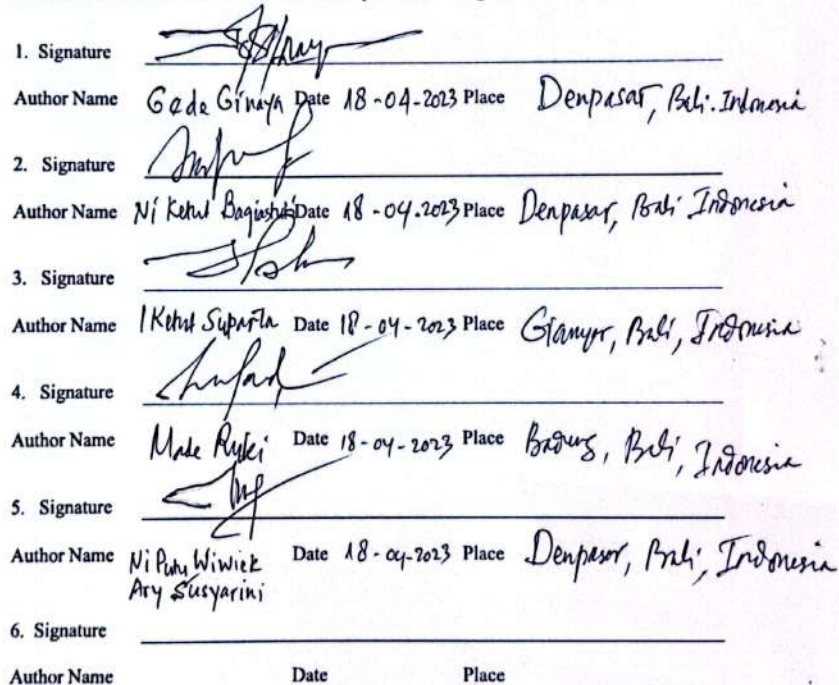 1. Signature
Author Name Gede Ginaya Date 18-04-2023 Place Denpasar, Bali. Indonesia
2. Signature
Author Name Ni Ketut Bagiastuti Date 18-04-2023 Place Denpasar, Bali Indonesia
3. Signature
Author Name I Ketut Suparta Date 18-04-2023 Place Gianyar, Bali, Indonesia
4. Signature
Author Name Made Ruki Date 18-04-2023 Place Badung, Bali, Indonesia
5. Signature
Author Name Ni Putu Wiwiek Date 18-04-2023 Place Denpasar, Bali, Indonesia
Ary Susyarini
6. Signature
Author Name Date Place